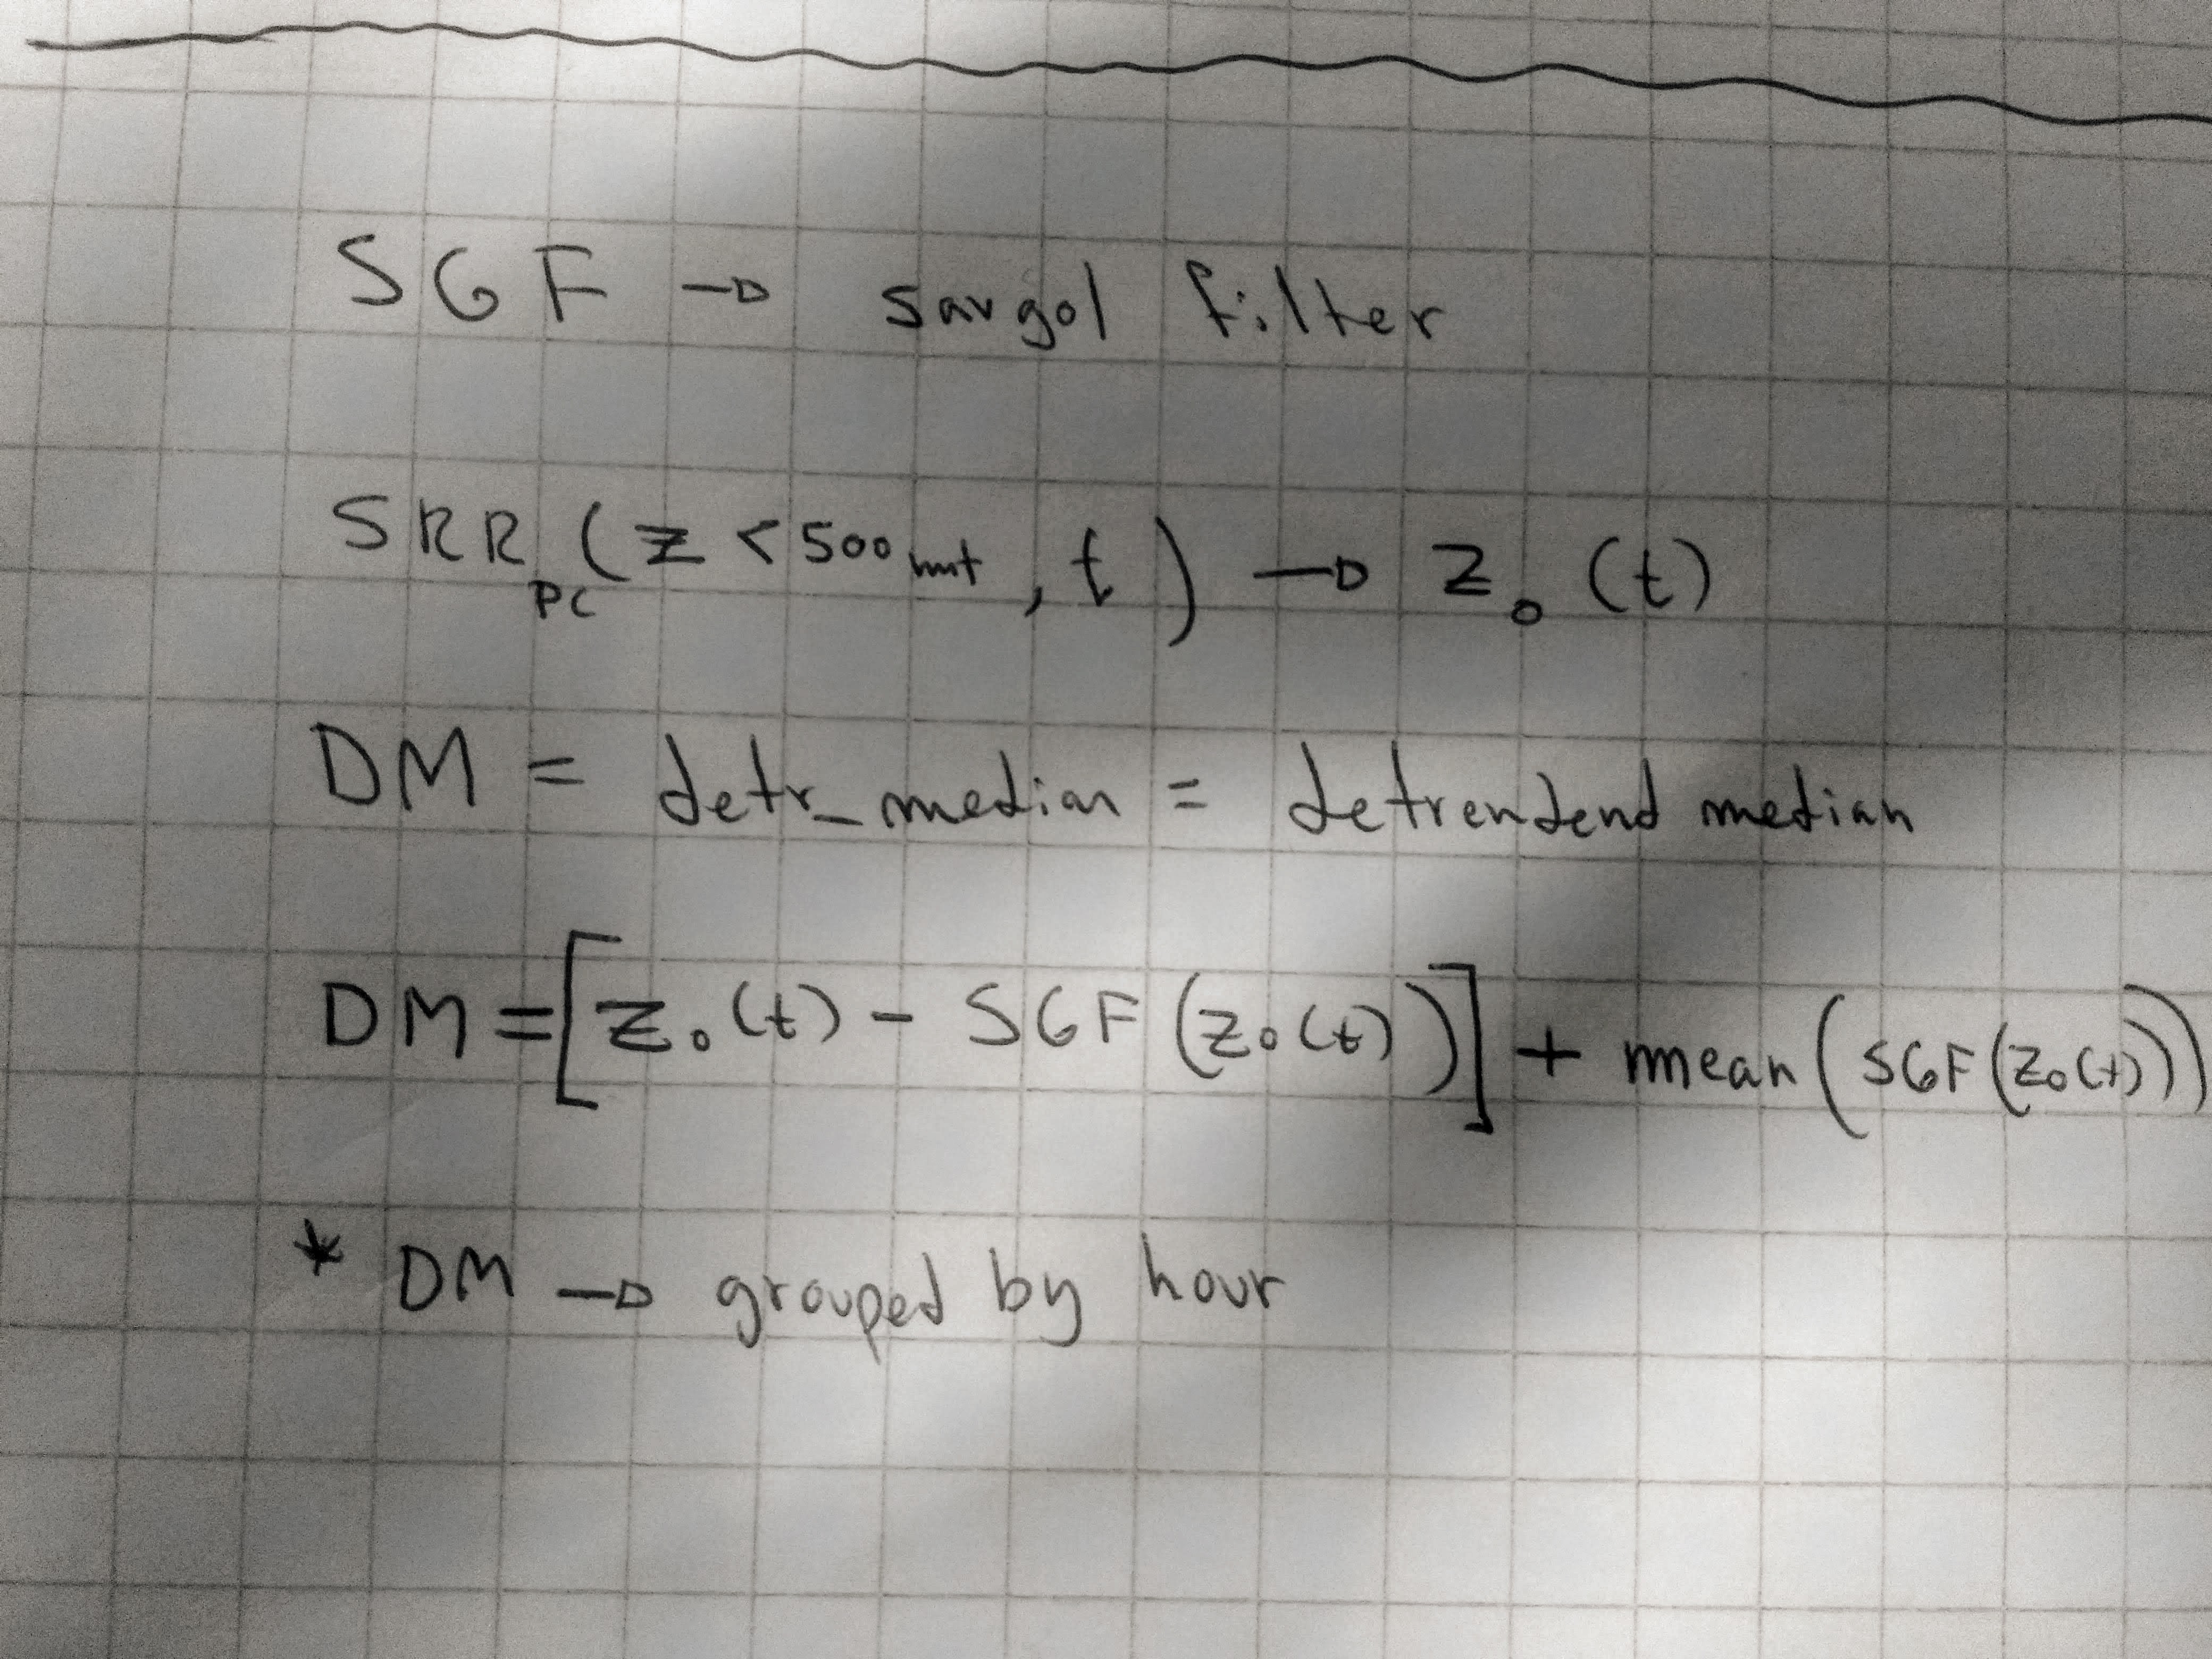 SGF → savgol filter
SRR PC (z < 500 mt, t) → z₀ (t)
DM = detr_median = detrendend median
DM = [z₀(t) - SGF(z₀(t))] + mean(SGF(z₀(t)))
* DM → grouped by hour